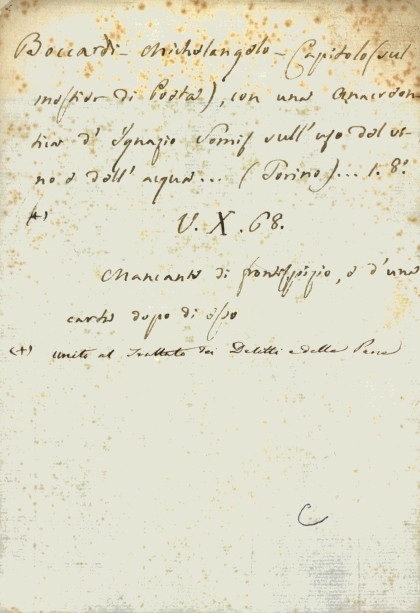 Boccardi - Michelangelo - Capitolo (sul
mestier di Poeta), con una Anacreon
tica d' Ignazio Somis sull' uso del vi-
no e dell' acqua ... (Torino) ... 1. 8°.
(+)
V. X. 68.
Mancante di frontispizio, e d' una
carta dopo di esso
(+) unito al Trattato dei Delitti e delle Pene
C